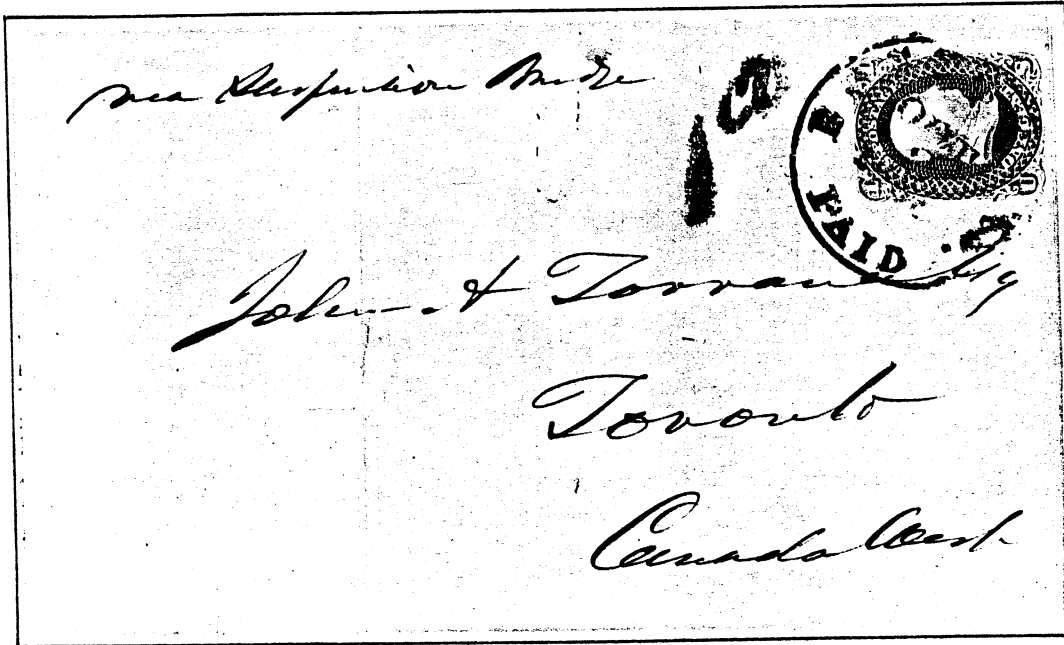 via Suspension Bridge
PAID
John A Torrance Esq
Toronto
Canada West